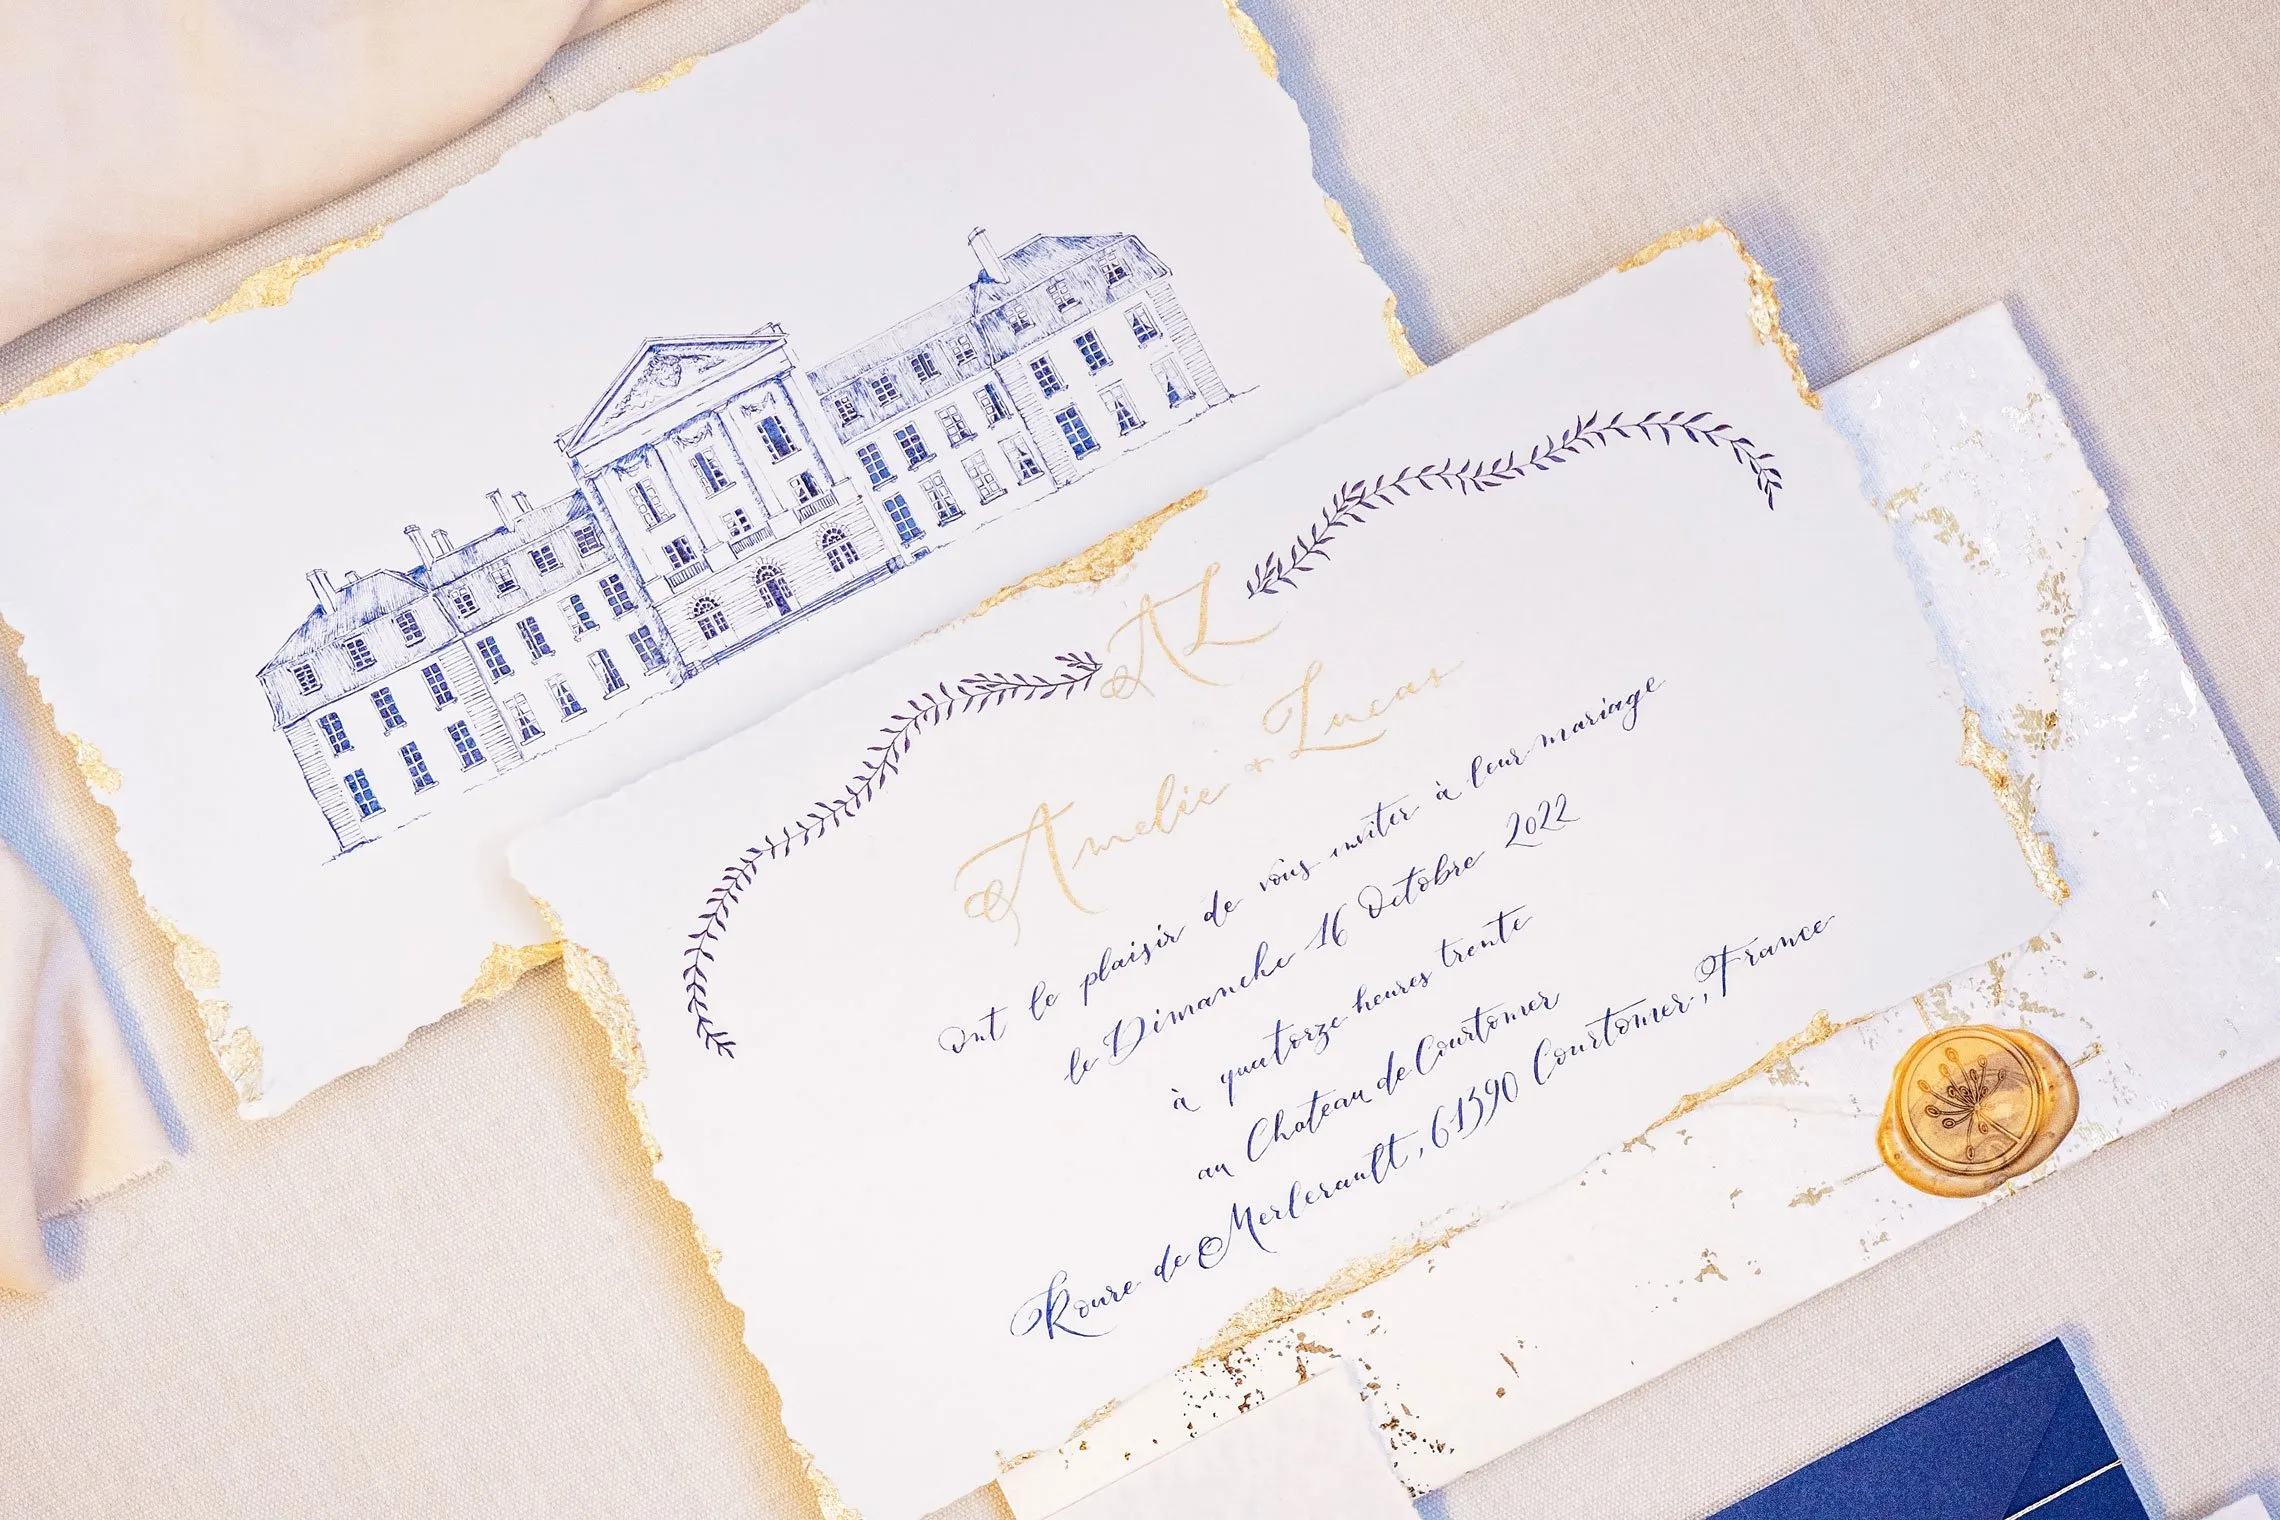 AL
Amelie & Lucas
Ont le plaisir de vous inviter à leur mariage
le Dimanche 16 Octobre 2022
à quatorze heures trente
au Chateau de Courtomer
Roure de Merlerault, 61390 Courtomer, France